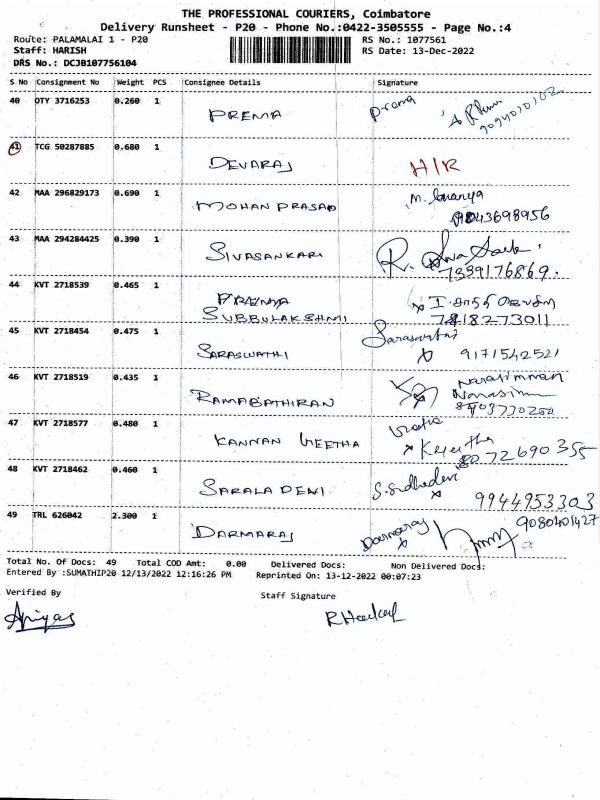 THE PROFESSIONAL COURIERS, Coimbatore
Delivery Runsheet - P20 - Phone No.:0422-3505555 - Page No.:4
Route: PALAMALAI 1 - P20 RS No.: 1077561
Staff: HARISH RS Date: 13-Dec-2022
DRS No.: DCJB107756104
S No Consignment No Weight PCS Consignee Details Signature
40 OTY 3716253 0.260 1 PREMA Prema
41 TCG 50287885 0.680 1 DEVARAJ H/R
42 MAA 296829173 0.690 1 MOHAN PRASAD
9043698956
43 MAA 294284425 0.390 1 SIVASANKARI
7339176869.
44 KVT 2718539 0.465 1
SUBBULAKSHMI 7418273011
45 KVT 2718454 0.475 1 SARASWATHI Saraswathi
9171542521
46 KVT 2718519 0.435 1 RAMABATHIRAN
47 KVT 2718577 0.480 1 KANNAN GEETHA
8072690355
48 KVT 2718462 0.460 1 SARALA DEVI
9944953303
49 TRL 626042 2.300 1 DARMARAJ Darmaraj
9080401427
Total No. Of Docs: 49 Total COD Amt: 0.00 Delivered Docs: Non Delivered Docs:
Entered By :SUMATHIP20 12/13/2022 12:16:26 PM Reprinted On: 13-12-2022 00:07:23
Verified By Staff Signature